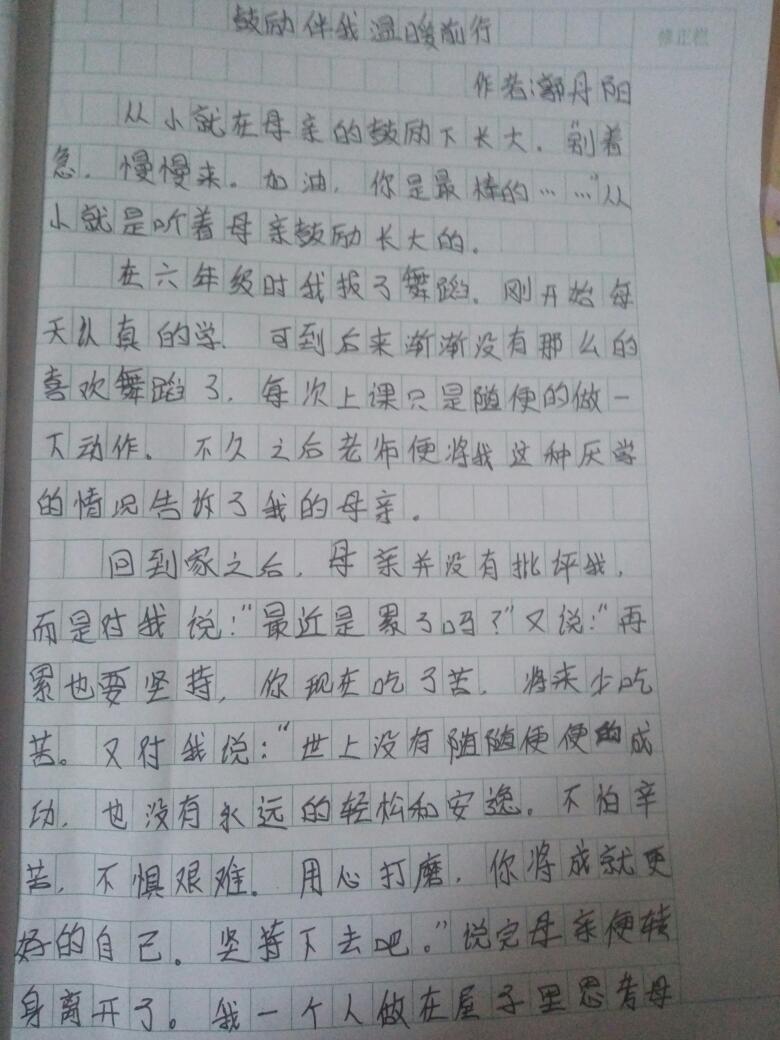 鼓励伴我温暖前行
修正栏
作者:郭丹阳
从小就在母亲的鼓励下长大。"别着
急,慢慢来。加油,你是最棒的……"从
小就是听着母亲鼓励长大的。
在六年级时我报了舞蹈。刚开始每
天认真的学,可到后来渐渐没有那么的
喜欢舞蹈了,每次上课只是随便的做一
下动作。不久之后老师便将我这种厌学
的情况告放了我的母亲。
回到家之后,母亲并没有批评我,
而是对我说:"最近是累了吗?"又说:"再
累也要坚持,你现在吃了苦,将来少吃
苦。又对我说:"世上没有随随便便的成
功,也没有永远的轻松和安逸。不怕辛
苦,不惧艰难。用心打磨,你将成就更
好的自己。坚持下去吧。"说完母亲便转
身离开了。我一个人做在屋子里思考母